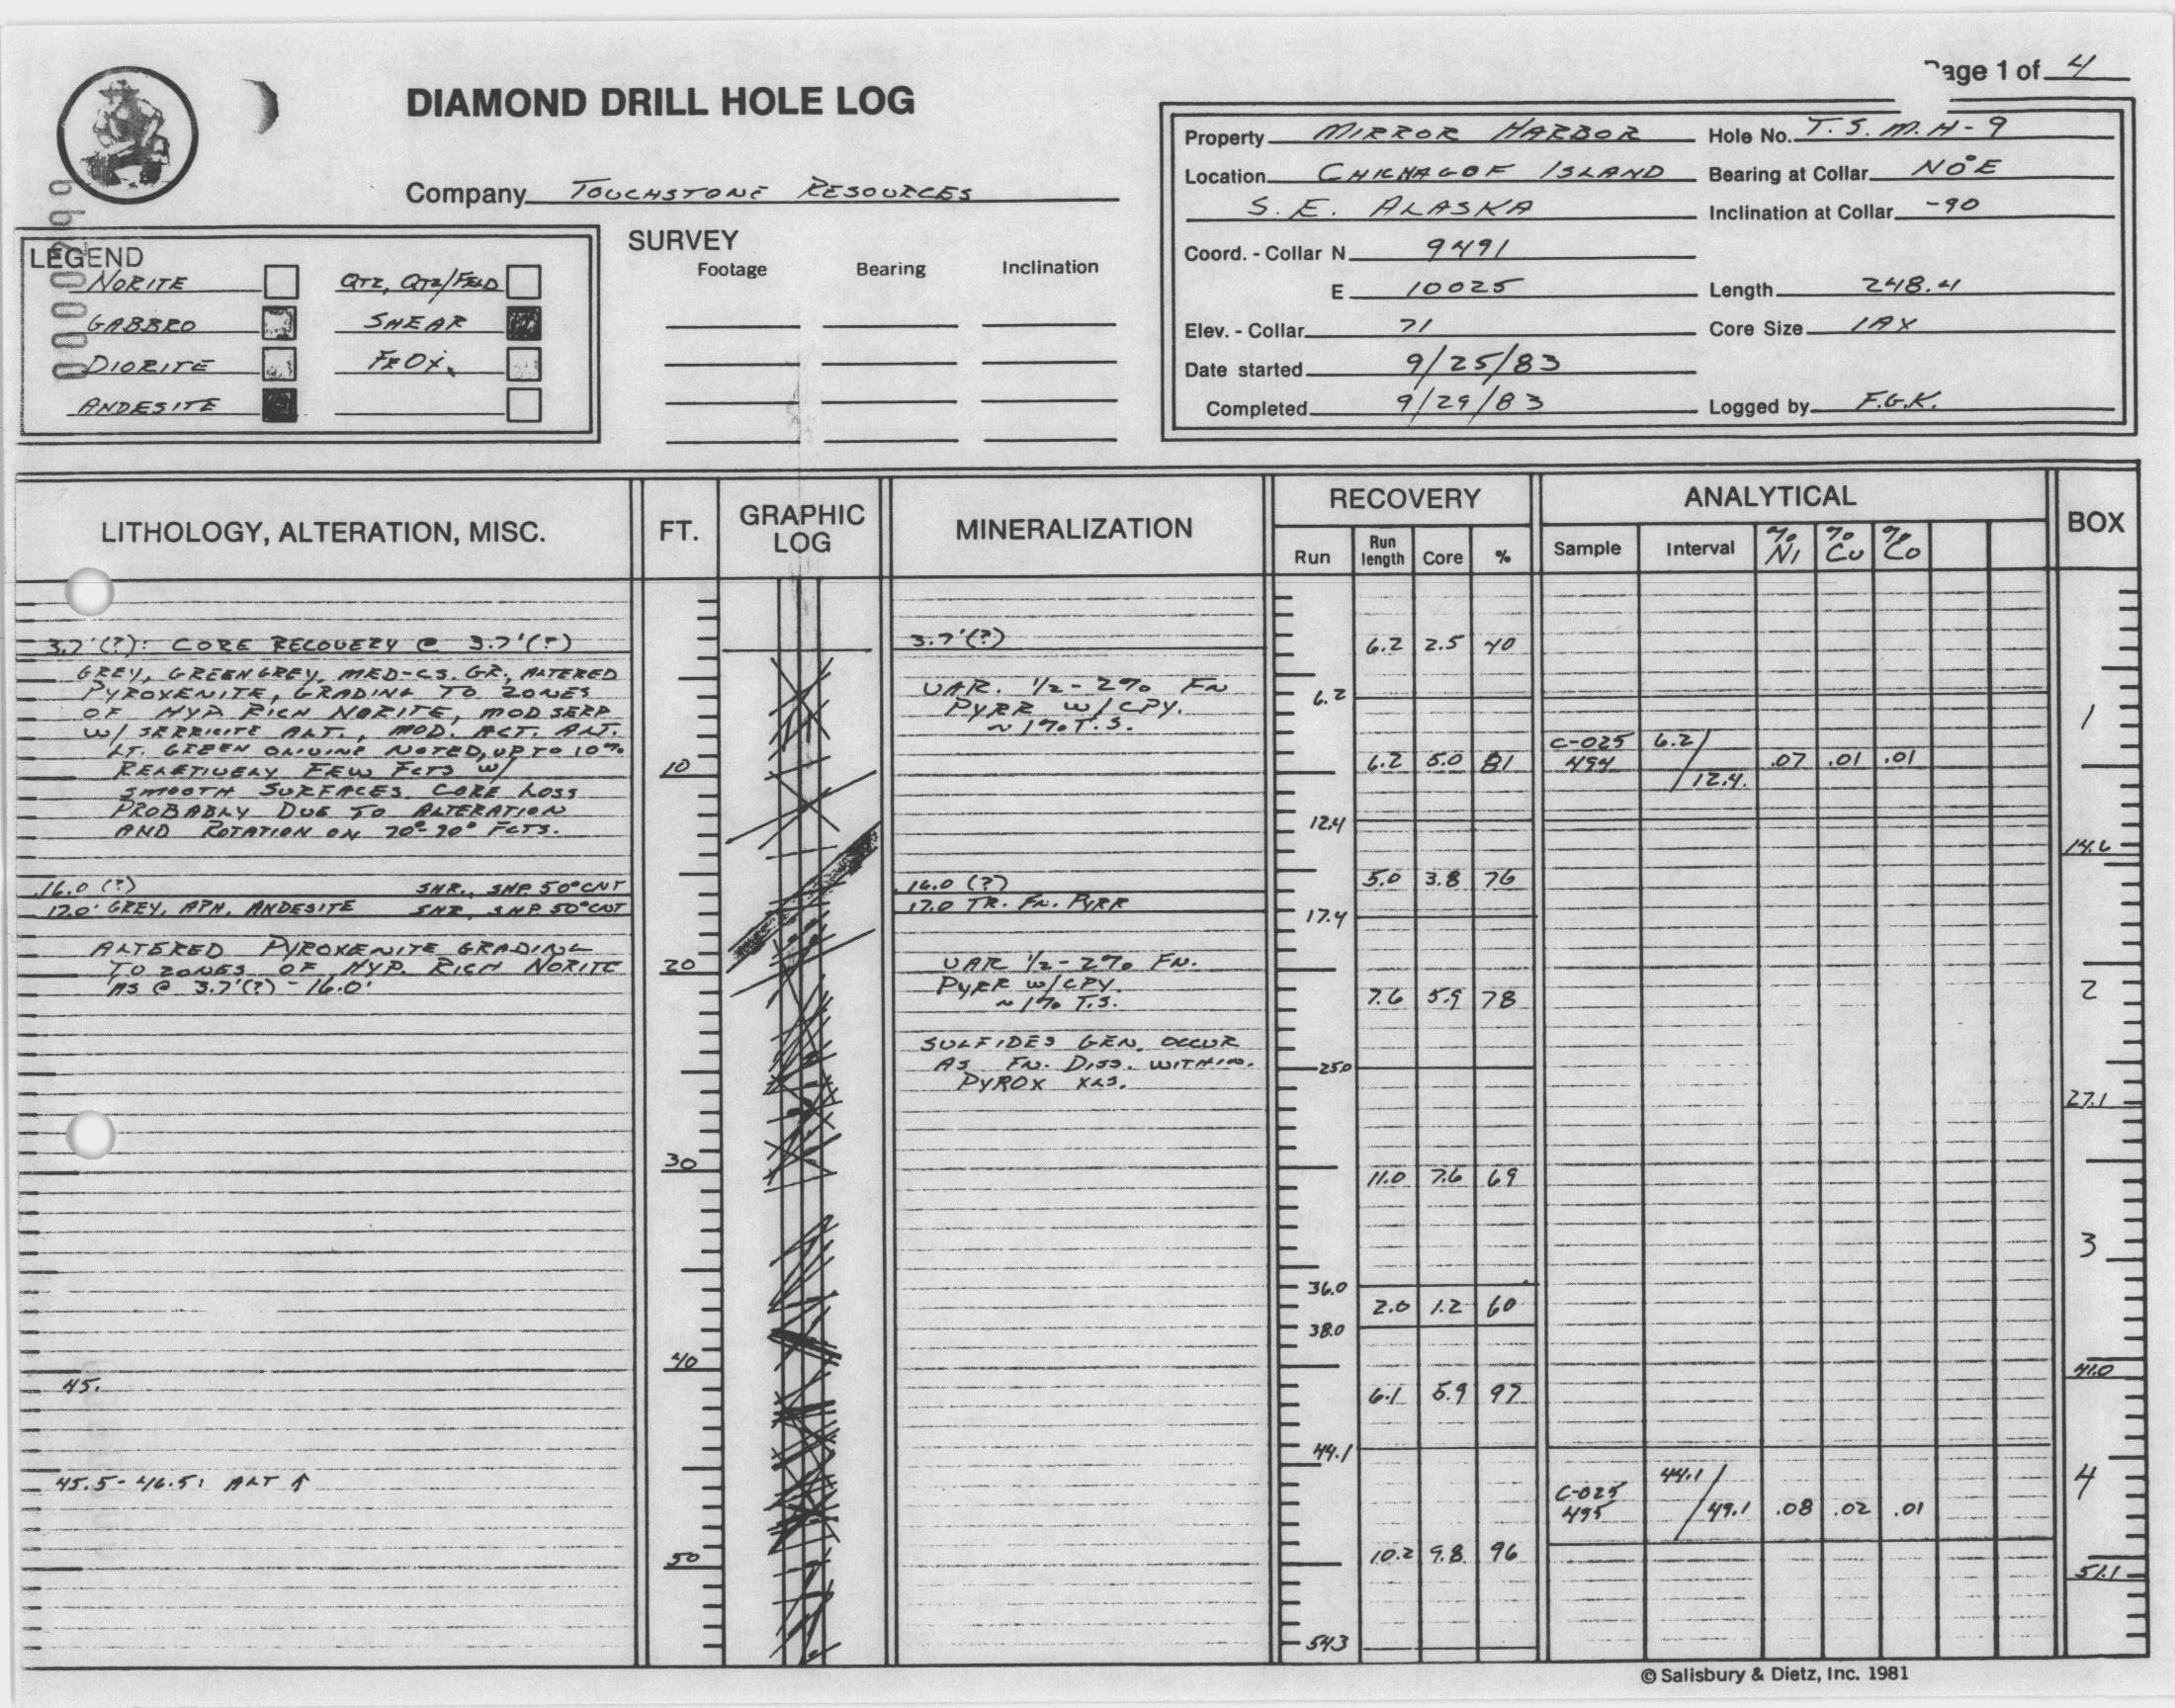 Page 1 of 4
DIAMOND DRILL HOLE LOG
Company TOUCHSTONE RESOURCES
Property MIRROR HARBOR Hole No. T.S.M.H-9
Location CHICHAGOF ISLAND Bearing at Collar N0°E
S.E. ALASKA Inclination at Collar -90
Coord. - Collar N 9491
E 10025 Length 248.4
Elev. - Collar 71 Core Size IAX
Date started 9/25/83
Completed 9/29/83 Logged by F.G.K.
LEGEND
NORITE QTZ, QTZ/FELD
GABBRO SHEAR
DIORITE FEOX.
ANDESITE
SURVEY
Footage Bearing Inclination
LITHOLOGY, ALTERATION, MISC. FT. GRAPHIC LOG MINERALIZATION RECOVERY ANALYTICAL BOX
Run Run length Core % Sample Interval % Ni % Cu % Co
3.7'(?): CORE RECOVERY @ 3.7'(?)
GREY, GREENGREY, MED-CS. GR, ALTERED
PYROXENITE, GRADING TO ZONES
OF HYP RICH NORITE, MOD SERP
W/ SERRICITE ALT., MOD. ACT. ALT.
LT. GREEN OLIVINE NOTED, UP TO 10%
RELETIVELY FEW FCTS W/
SMOOTH SURFACES. CORE LOSS
PROBABLY DUE TO ALTERATION
AND ROTATION ON 70°-20° FCTS.
16.0 (?) SHR., SHP 50° CNT
17.0' GREY, APH. ANDESITE SHR, SHP 50° CNT
ALTERED PYROXENITE GRADING
TO ZONES OF HYP. RICH NORITE
AS @ 3.7'(?) - 16.0'
45.
45.5-46.5: ALT ↑
10
20
30
40
50
3.7'(?)
VAR. 1/2-2% FN
PYRR W/CPY.
~1% T.S.
16.0 (?)
17.0 TR. FN. PYRR
VAR 1/2-2% FN.
PYRR W/CPY.
~1% T.S.
SULFIDES GEN. OCCUR
AS FN. DISS. WITHIN.
PYROX XLS.
6.2 2.5 40
6.2
6.2 5.0 81
12.4
5.0 3.8 76
17.4
7.6 5.9 78
25.0
11.0 7.6 69
36.0
2.0 1.2 60
38.0
6.1 5.9 97
44.1
10.2 9.8 96
54.3
C-025 6.2/
494 /12.4. .07 .01 .01
44.1/
C-025
495 /49.1 .08 .02 .01
1
14.6
2
27.1
3
41.0
4
51.1
© Salisbury & Dietz, Inc. 1981